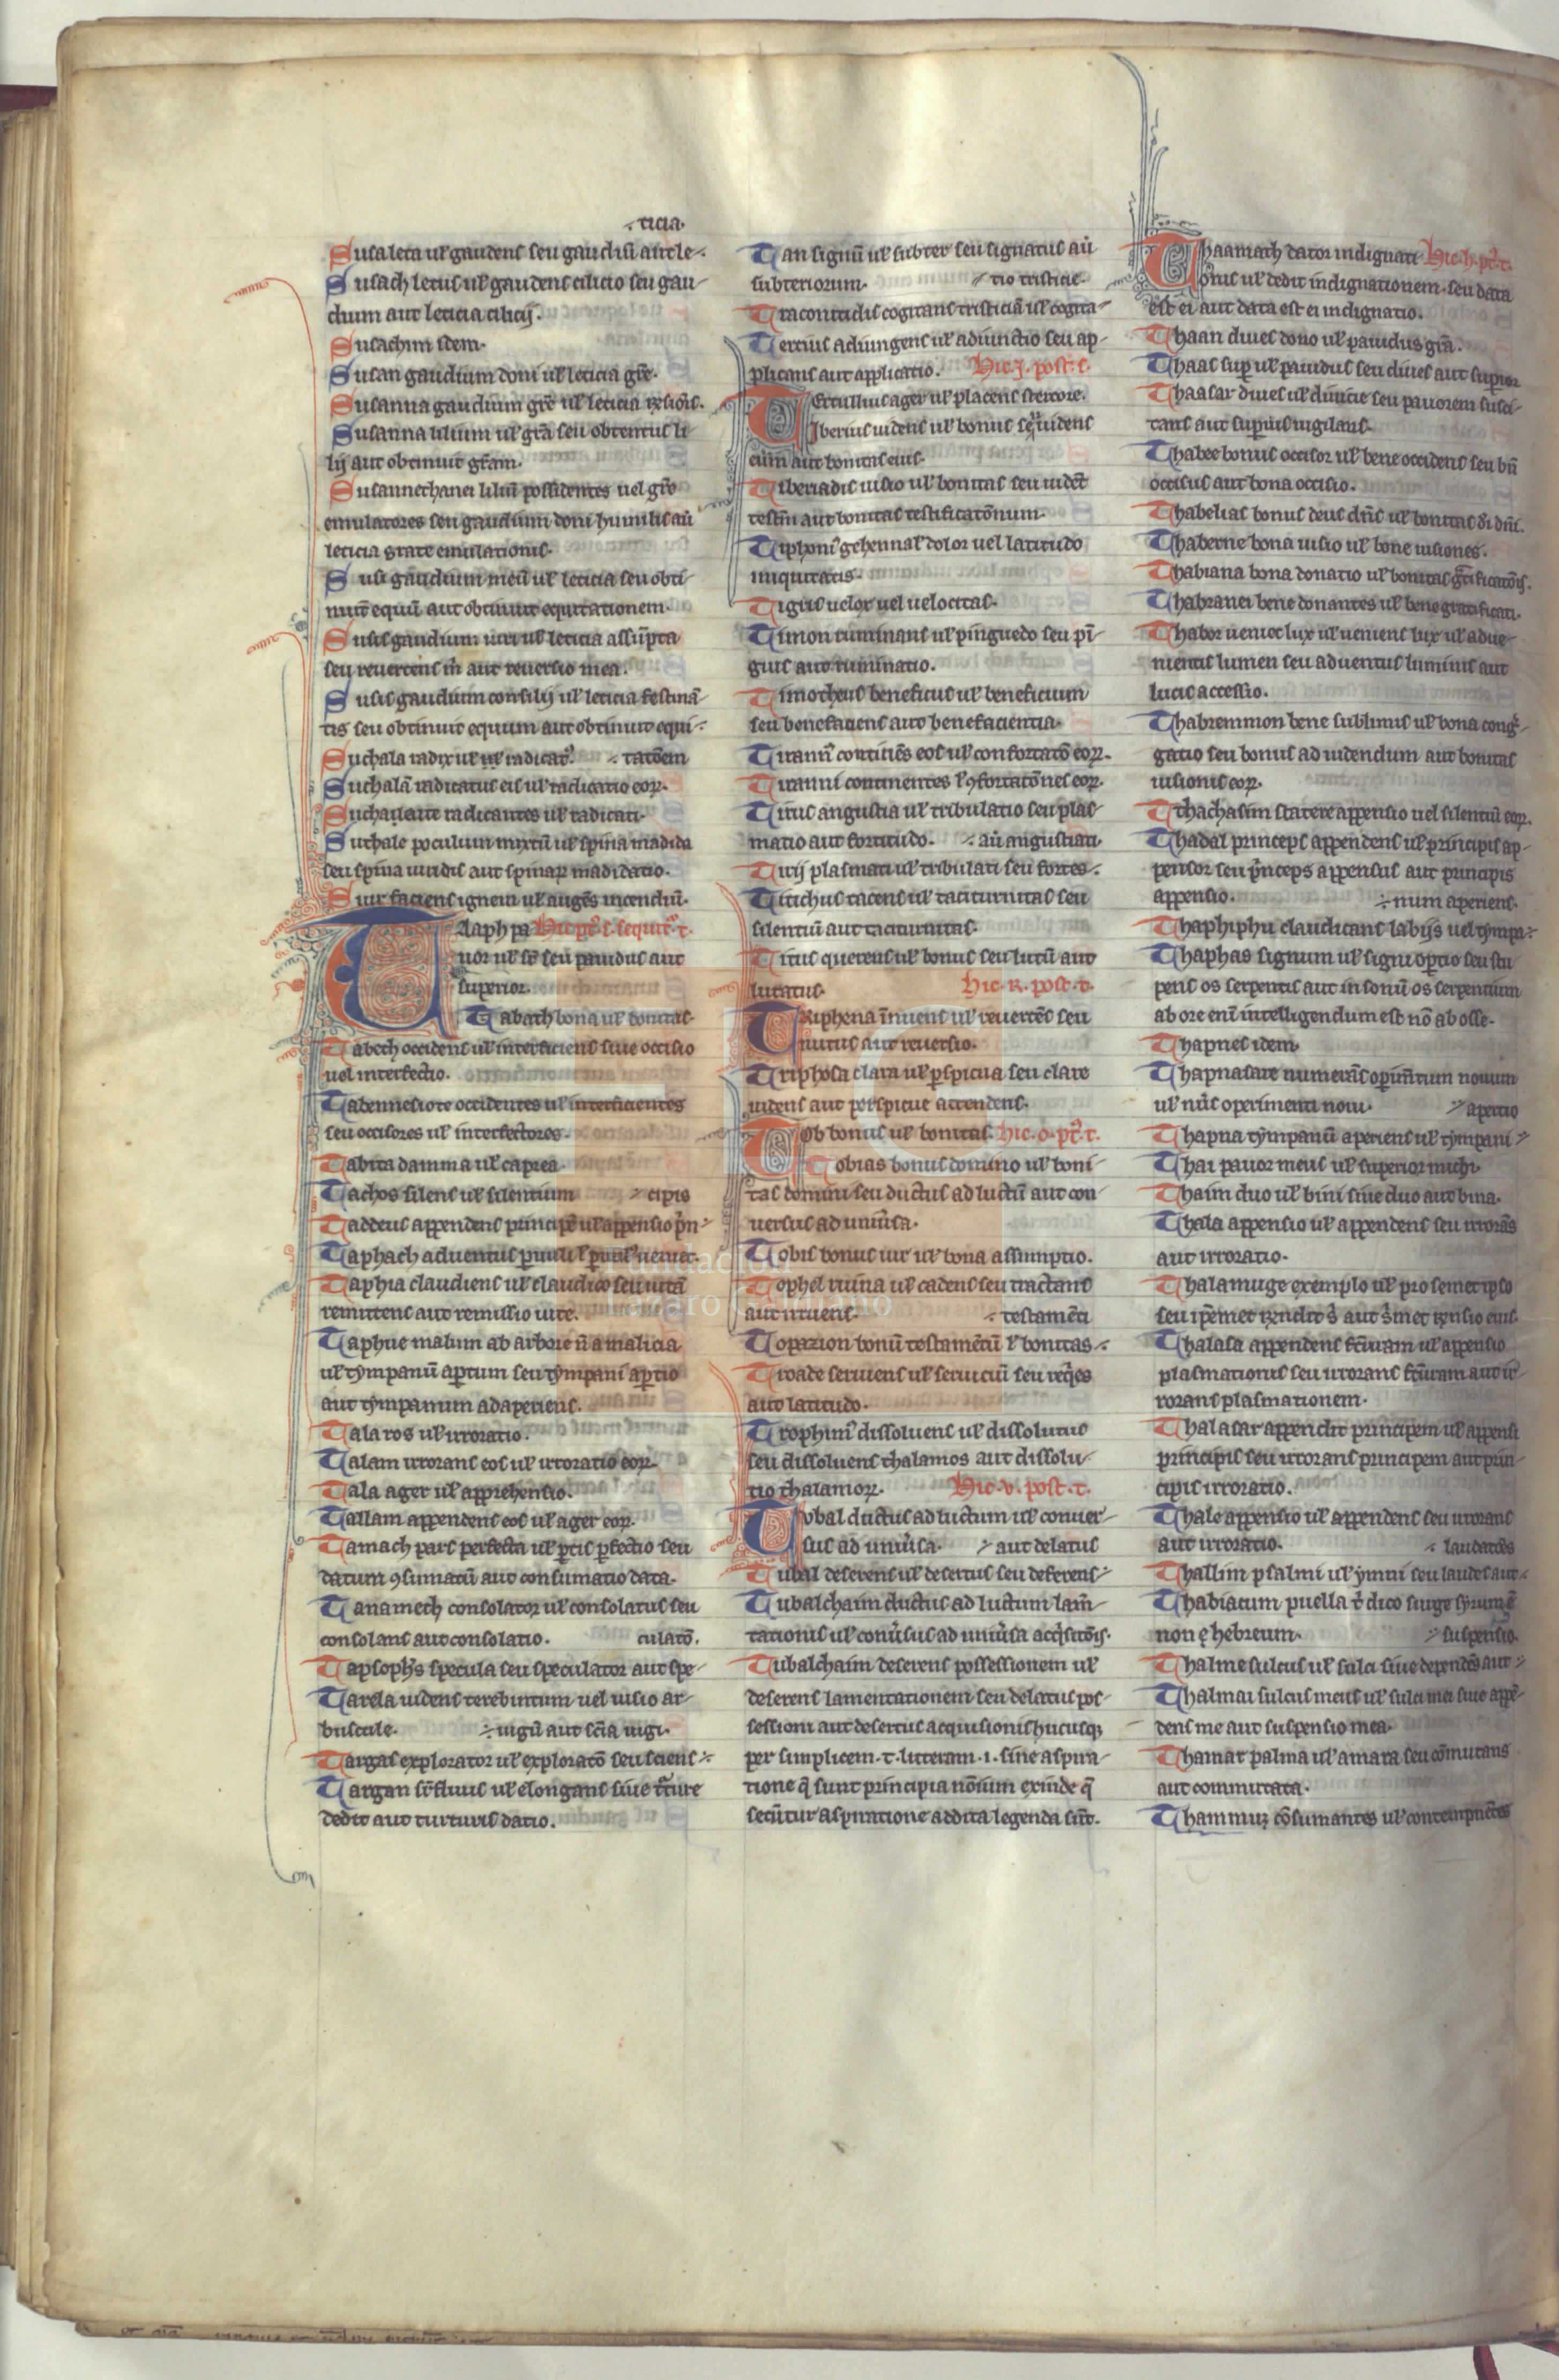 ticia.
Susa leta ul' gaudens seu gaudiū aut le
Susach letus ul' gaudens cilicio seu gau
dium aut leticia cilicij.
Susachim idem.
Susan gaudium doni ul' leticia gr̄e.
Susanna gaudium gr̄e ul' leticia
Susanna lilium ul' gr̄a seu obtentus li
lij aut obtinuit gr̄am.
Susannechanei liliū possidentes uel gr̄e
emulatores seu gaudium doni humilis aū
leticia grate emulationis.
Susi gaudium meū ul' leticia seu obti
nuit equū aut obtinuit equitationem.
Susis gaudium uiri ul' leticia assūpta
seu reuertens in aut reuersio mea.
Susis gaudium consilij ul' leticia festinā
tis seu obtinuit equum aut obtinuit equi
Suthala radix ul' ul' radicat' tatōem
Suthalā radicatus eis ul' radicatio eoꝝ.
radicantes ul' radicati.
Suthale poculum mixtū ul' spina madida
seu spina uiridis aut spinaꝝ madidatio.
Suur faciens ignem ul' augēs incendiū.
Taaph pa Hic pt' s. sequit' t.
uor ul' sē seu pauidus aut
superior.
Tabath bona ul' bonitas.
Tabech occidens ul' interficiens siue occisio
uel interfectio.
Tabennesiote occidentes ul' interficientes
seu occisores ul' interfectores.
Tabita damma ul' caprea.
Tachos silens ul' silentium cipis
Taddeus appendens principē ul' appensio p̄n
Taphach aduentus ueniet.
Taphia claudiens ul' claudico seu uitā
remittens aut remissio uite.
Taphue malum ab arbore n̄ a malicia
ul' tympanū apertum seu tympani apertio
aut tympanum adaperiens.
Tala ros ul' irroratio.
Talam irrorans eos ul' irroratio eoꝝ.
Tala ager ul' apprehensio.
Tallam appendens eos ul' ager eoꝝ.
Tamach pars perfecta ul' ptis pfectio seu
datum ꝯsumatū aut consumatio data.
Tanamech consolator ul' consolatus seu
consolans aut consolatio. culatō.
Tapsophis specula seu speculator aut spe
Tarela uidens terebintum uel uisio ar
buscule. uigū aut scīa uigi.
Targas explorator ul' exploratō seu sciens
Targan sc̄ fluuis ul' elongans siue
dedit aut turturis datio.
Tan signū ul' subter seu signatus aū
subteriorum. tio tristicie.
Traconitidis cogitans tristiciā ul' cogita
Tercius adiungens ul' adiunctio seu ap
plicans aut applicatio. Hic .J. post .t.
Tertullius ager ul' placens stercore.
Tiberius uidens ul' bonus seu uidens
eum aut bonitas eius.
Tiberiadis uisio ul' bonitas seu uidet
testīn aut bonitas testificatōnum.
Tiphoni' gehennal' dolor uel latitudo
iniquitatis.
Tigris uelox uel uelocitas.
Timon ruminans ul' pinguedo seu pī
guis aut ruminatio.
Timotheus beneficus ul' beneficium
seu benefaciens aut benefacientia.
Tirann' continēs eos ul' confortatō eoꝝ.
Tiranni continentes l' ꝯfortatōnes eoꝝ.
Titus angustia ul' tribulatio seu plas
matio aut fortitudo. aū angustiati.
Tirij plasmati ul' tribulati seu fortes
Titichus tacens ul' taciturnitas seu
silentiū aut taciturnitas.
Titus querens ul' bonus seu lutū aut
lutatus. Hic .R. post .t.
Triphena īnuens ul' reuertēs seu
nutus aut reuersio.
Triphosa clara ul' pspicua seu clare
uidens aut perspicue attendens.
Tob bonus ul' bonitas. hic .o. pt' .t.
Tobias bonus domino ul' boni
tas domini seu ductus ad luctū aut con
uersus ad uniūsa.
Tobis bonus uir ul' bona assumptio.
Tophel ruina ul' cadens seu tractans
aut irruens. testamēti
Topazion bonū testamētū l' bonitas
Troade seruiens ul' seruiciū seu reqes
aut latitudo.
Trophim' dissoluens ul' dissolutus
seu dissoluens thalamos aut dissolu
tio thalamoꝝ. Hic .v. post .t.
Tubal ductus ad luctum ul' conuer
sus ad uniūsa. aut delatus
Tubal deferens ul' desertus seu deferens
Tubalchaim ductus ad luctum lam̄
tationis ul' conūsus ad uniūsa
Tubalchaim deserens possessionem ul'
deserens lamentationem seu delatus pos
sessioni aut desertus acquisionis hucusqꝫ
per simplicem .t. litteram .i. sine aspira
tione q̄ sunt principia nōium exinde q̄
secūtur aspiratione addita legenda sūt.
Thaamach dator indignati Hic .h. pt' .t.
onis ul' dedit indignationem seu data
est ei aut data est ei indignatio.
Thaan diues dono ul' pauidus gr̄a.
Thaas sup ul' pauidus seu diues aut superior
Thaasar diues ul' diuicie seu pauorem susci
tans aut supuis uigilans.
Thabee bonus occisor ul' bene occidens seu bn̄
occisus aut bona occisio.
Thabelias bonus deus dn̄s ul' bonitas di dn̄i.
Thaberne bona uisio ul' bone uisiones.
Thabiana bona donatio ul' bonitas
Thabranei bene donantes ul' bene gratificati.
Thabor ueniet lux ul' ueniens lux ul' adue
nientis lumen seu aduentus luminis aut
lucis accessio.
Thabremmon bene sublimis ul' bona cong
gatio seu bonus ad uidendum aut bonitas
uisionis eoꝝ.
Thachasim statere appensio uel silentiū eoꝝ.
Thadal princeps appendens ul' principis ap
pensor seu p̄nceps appensus aut principis
appensio. num aperiens.
Thaphiphu claudicans labijs uel tympa
Thaphas signum ul' signi optio seu stu
pens os serpentis aut in sonū os serpentium
ab ore enī intelligendum est nō ab osse.
Thapnes idem.
Thapnasare numerās opim̄tum nouum
ul' nūs operimenti noui. apertio
Thapna tympanū aperiens ul' tympani
Thai pauor meus ul' superior michi.
Thaim duo ul' bini siue duo aut bina.
Thala appensio ul' appendens seu irrorās
aut irroratio.
Thalamuge exemplo ul' pro semet ipso
seu ip̄emet
Thalasa appendens ul' appensio
plasmationis seu irrorans aut ir
rorans plasmationem.
Thalasar appendit principem ul' appensi
principis seu irrorans principem aut prin
cipis irroratio.
Thale appensio ul' appendens seu irrorans
aut irroratio. laudatōes
Thallim psalmi ul' ymni seu laudes aut
Thabiatum puella t' dico surge
non ę hebreum. suspensio.
Thalme sulcus ul' sulci siue dependēs aut
Thalmai sulcus meus ul' sulci mei siue appē
dens me aut suspensio mea.
Thamar palma ul' amara seu cōmutans
aut commutata.
Thammuz cōsumantes ul' contempnētes
Fundación
Lázaro Galdiano